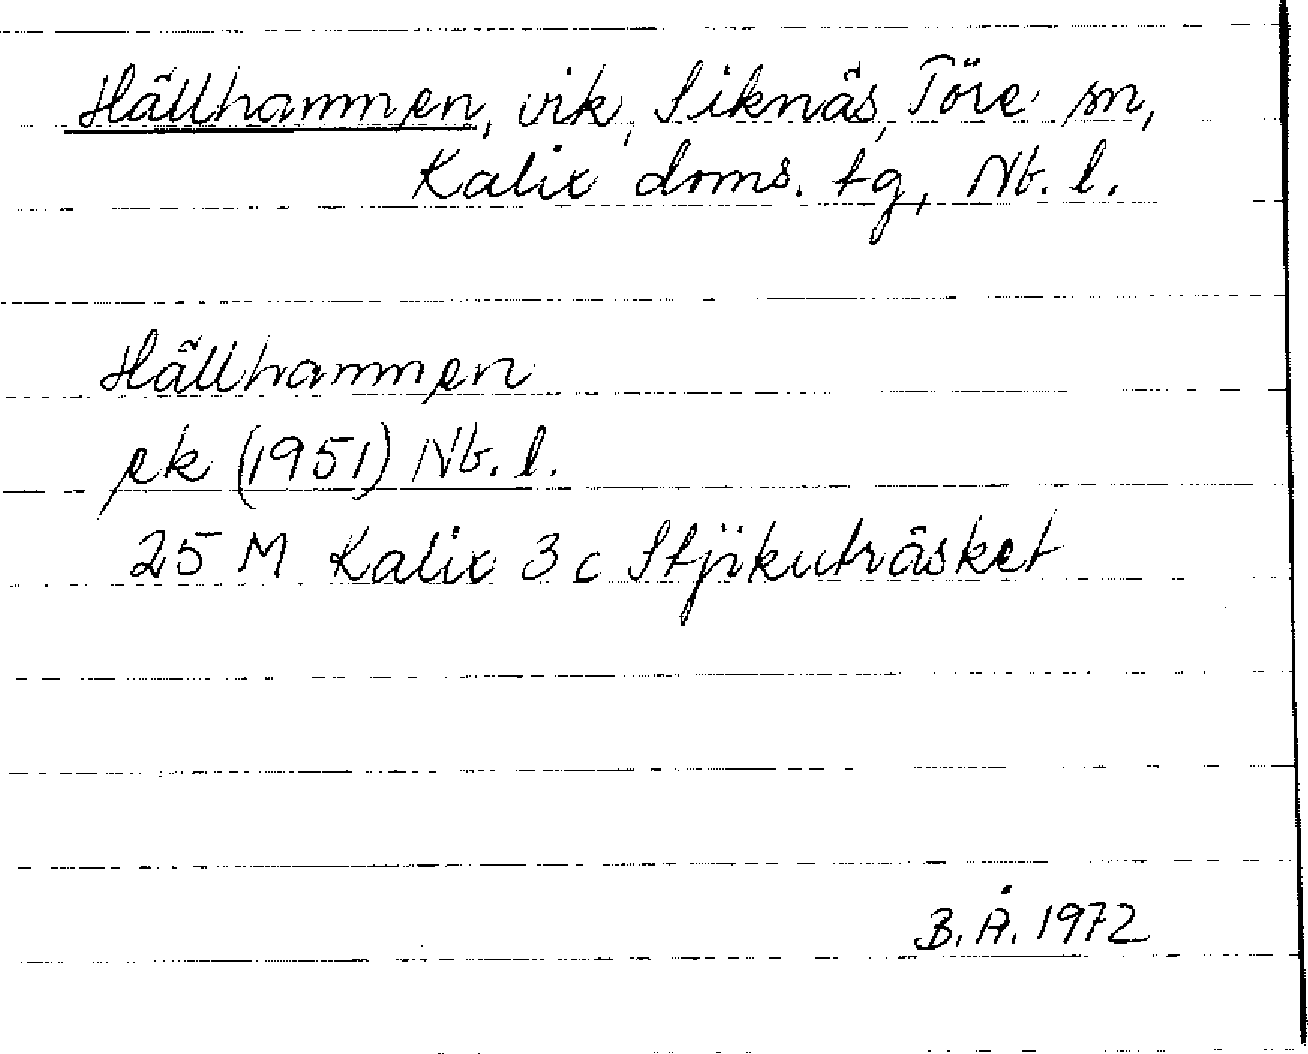 Hällhammen, vik, Siknäs, Töre sn,
Kalix doms. tg, Nb. l.
Hällhammen
ek (1951) Nb. l.
25 M Kalix 3c Stjikuträsket
B.Å. 1972